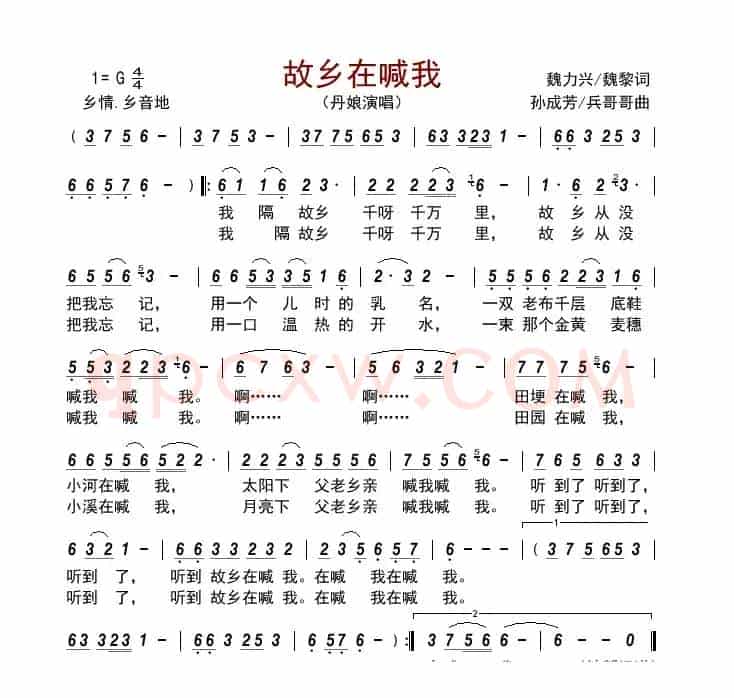 故乡在喊我
1= G 4/4
魏力兴/魏黎词
乡情.乡音地
（丹娘演唱）
孙成芳/兵哥哥曲
( 3 7 5 6 | 3 7 5 3 - | 37 75 653 5 | 63 3 323 1 - | 66 3 253 |
6 6 5 7 6 - ) ‖: 6 1 1 6 2 3 · | 2 2 2 2 2 3 1 6 - | 1 · 6 2 2 3 · |
我 隔 故乡 千呀 千万 里, 故 乡 从 没
我 隔 故乡 千呀 千万 里, 故 乡 从 没
6 5 5 5 6 5 3 - | 6 6 5 3 3 5 1 6 | 2 · 3 2 - | 5 5 5 6 2 2 3 1 6 |
把我忘 记, 用一个 儿 时 的 乳 名, 一双 老布千层 底鞋
把我忘 记, 用一口 温 热 的 开 水, 一束 那个金黄 麦穗
5 5 3 2 2 3 1 6 - | 6 7 6 3 - | 5 6 3 2 1 - | 7 7 7 5 5 6 - |
喊我 喊 我。 啊…… 啊…… 田埂 在喊 我,
喊我 喊 我。 啊…… 啊…… 田园 在喊 我,
6 6 5 5 6 5 2 2 · | 2 2 2 3 7 5 5 6 | 7 5 5 6 5 6 - | 7 6 5 6 3 3 |
小河在喊 我, 太阳下 父老乡亲 喊我喊 我。 听 到了 听到了,
小溪在喊 我, 月亮下 父老乡亲 喊我喊 我。 听 到了 听到了,
6 3 2 1 - | 6 6 3 3 2 3 2 | 2 3 5 6 5 7 | 6 - - - | ( 3 7 5 653 |
听到 了, 听到 故乡在喊 我。在喊 我在喊 我。
听到 了, 听到 故乡在喊 我。在喊 我在喊 我。
63 3 323 1 - | 66 6 253 3 | 6 57 6 - ) :‖ 3 7 5 6 6 - | 6 - - 0 ‖
qpcxw.COM